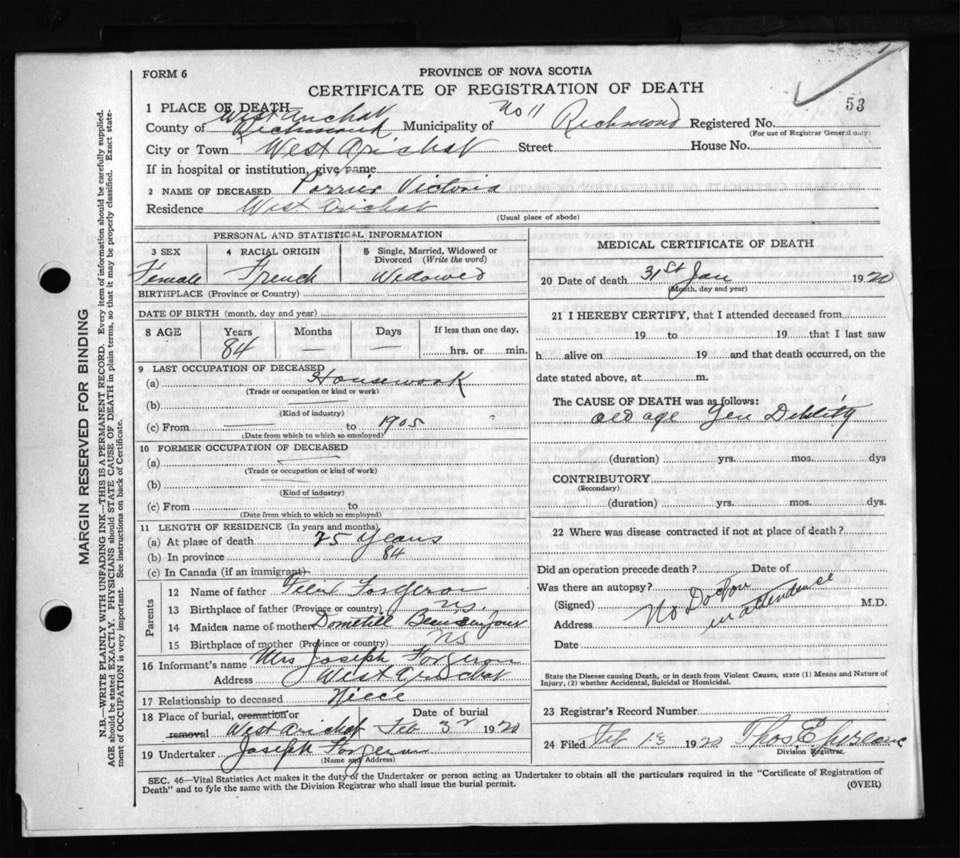 FORM 6
PROVINCE OF NOVA SCOTIA
CERTIFICATE OF REGISTRATION OF DEATH
53
1 PLACE OF DEATH West Arichat
County of Richmond Municipality of No 11 Richmond Registered No.
(For use of Registrar General only)
City or Town West Arichat Street House No.
If in hospital or institution, give name
2 NAME OF DECEASED Porrier Victoria
Residence West Arichat
(Usual place of abode)
PERSONAL AND STATISTICAL INFORMATION
3 SEX 4 RACIAL ORIGIN 5 Single, Married, Widowed or Divorced (Write the word)
Female French Widowed
BIRTHPLACE (Province or Country)
DATE OF BIRTH (month, day and year)
8 AGE Years Months Days If less than one day,
84 — — hrs. or min.
9 LAST OCCUPATION OF DECEASED
(a) Housework
(Trade or occupation or kind or work)
(b)
(Kind of industry)
(c) From to 1905
(Date from which to which so employed)
10 FORMER OCCUPATION OF DECEASED
(a)
(Trade or occupation or kind of work)
(b)
(Kind of industry)
(c) From to
(Date from which to which so employed)
11 LENGTH OF RESIDENCE (In years and months)
(a) At place of death 75 years
(b) In province 84
(c) In Canada (if an immigrant)
Parents
12 Name of father Felix Forgeron
13 Birthplace of father (Province or country) NS.
14 Maiden name of mother Dometill
15 Birthplace of mother (Province or country) NS
16 Informant's name Mrs Joseph Forgeron
Address West Arichat
17 Relationship to deceased Niece
18 Place of burial, cremation or removal West Arichat Date of burial Feb 3 1920
19 Undertaker Joseph Forgeron
(Name and Address)
MEDICAL CERTIFICATE OF DEATH
20 Date of death 31st Jan 1920
(Month, day and year)
21 I HEREBY CERTIFY, that I attended deceased from
19 to 19 that I last saw
h alive on 19 and that death occurred, on the
date stated above, at m.
The CAUSE OF DEATH was as follows:
old age Gen Debility
(duration) yrs. mos. dys
CONTRIBUTORY
(Secondary)
(duration) yrs. mos. dys.
22 Where was disease contracted if not at place of death?
Did an operation precede death? Date of
Was there an autopsy?
(Signed) M.D.
No Doctor in attendence
Address
Date
State the Disease causing Death, or in death from Violent Causes, state (1) Means and Nature of
Injury, (2) whether Accidental, Suicidal or Homicidal.
23 Registrar's Record Number
24 Filed Feb 13 1920 Thos E
Division Registrar
SEC. 46—Vital Statistics Act makes it the duty of the Undertaker or person acting as Undertaker to obtain all the particulars required in the "Certificate of Registration of
Death" and to fyle the same with the Division Registrar who shall issue the burial permit.
(OVER)
MARGIN RESERVED FOR BINDING
N.B.—WRITE PLAINLY WITH UNFADING INK—THIS IS A PERMANENT RECORD. Every item of information should be carefully supplied.
AGE should be stated EXACTLY. PHYSICIANS should STATE CAUSE OF DEATH in plain terms, so that it may be properly classified. Exact state-
ment of OCCUPATION is very important. See instructions on back of Certificate.